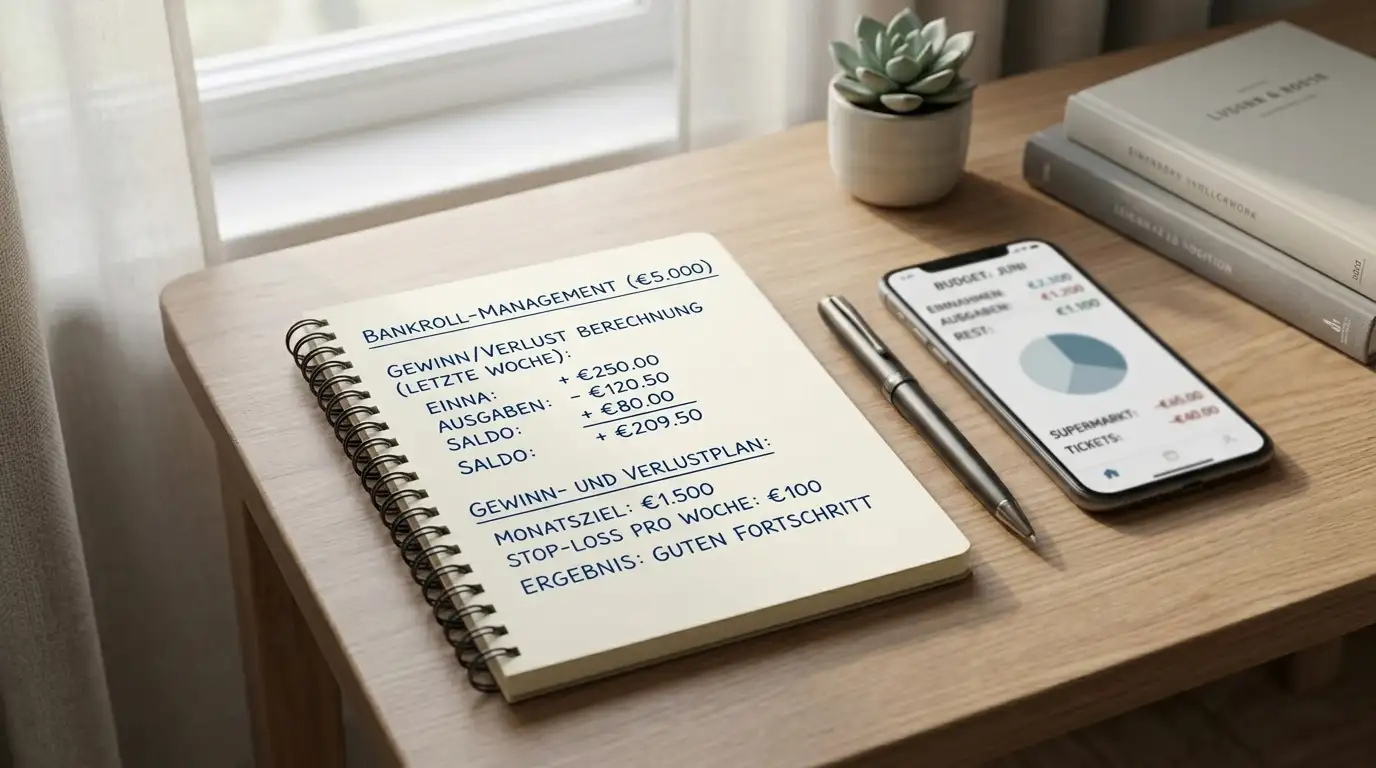 BANKROLL-MANAGEMENT (€5.000)
GEWINN/VERLUST BERECHNUNG
(LETZTE WOCHE):
EINNA: + €250.00
AUSGABEN: - €120.50
SALDO: + €80.00
SALDO: + €209.50
GEWINN- UND VERLUSTPLAN:
MONATSZIEL: €1.500
STOP-LOSS PRO WOCHE: €100
ERGEBNIS: GUTEN FORTSCHRITT
BUDGET: JUNI
EINNAHMEN: €2,300
AUSGABEN: €1,200
REST: €1,100
SUPERMARKT: -€45.00
TICKETS: -€40.00